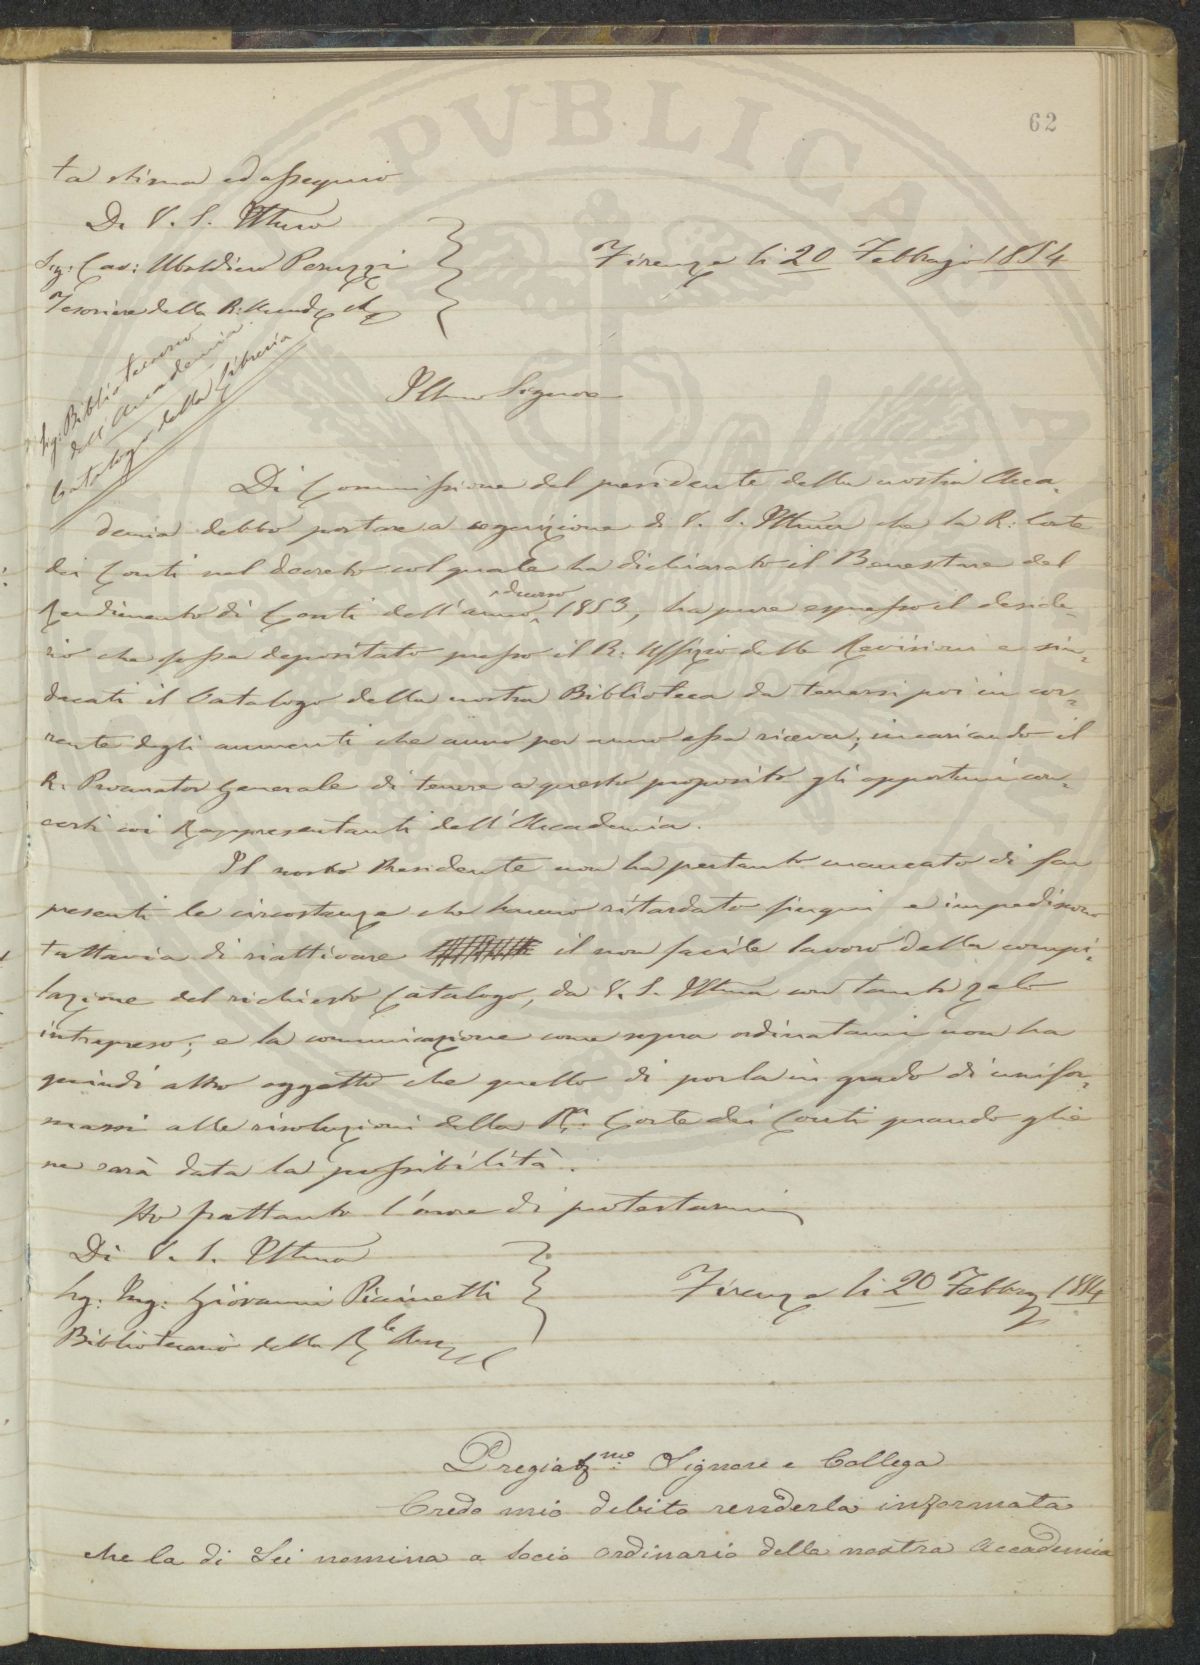 62
ta stima ed ossequio
Di V. S. Illma
Sig: Cav: Ubaldino Peruzzi
Tesoriere della R:
Firenze li 20 Febbrajo 1854
Sig: Bibliotecario
dell'Accademia
Catalogo della Libreria
Illmo Signore
Di Commissione del presidente della nostra Acca-
demia debbo portare a cognizione di V. S. Illma che la R: Corte
dei Conti nel decreto col quale ha dichiarato il Benestare del
Rendimento di Conti dell'anno decorso 1853, ha pure espresso il deside-
rio che fosse depositato presso il R: Uffizio delle Revisioni e sin-
dacati il Catalogo della nostra Biblioteca da tenersi poi in cor-
rente degli aumenti che anno per anno essa riceva; incaricando il
R. Procurator Generale di tenere a questo proposito gli opportuni con-
certi coi Rappresentanti dell'Accademia.
Il nostro Presidente non ha pertanto mancato di far
presenti le circostanze che hanno ritardato finqui e impediscono
tuttavia di riattivare il non facile lavoro della compi-
lazione del richiesto Catalogo, da V. S. Illma con tanto zelo
intrapreso; e la comunicazione come sopra ordinatami non ha
quindi altro oggetto che quello di porla in grado di unifor-
marsi alle risoluzioni della R: Corte dei Conti quando glie
ne sarà data la possibilità.
Ho frattanto l'onore di protestarmi
Di V. S. Illma
Sig: Ing: Giovanni Piciuetti
Bibliotecario della Rle
Firenze li 20 Febbro 1854
Pregiatme Signore e Collega
Credo mio debito renderla informata
che la di Lei nomina a Socio Ordinario della nostra Accademia